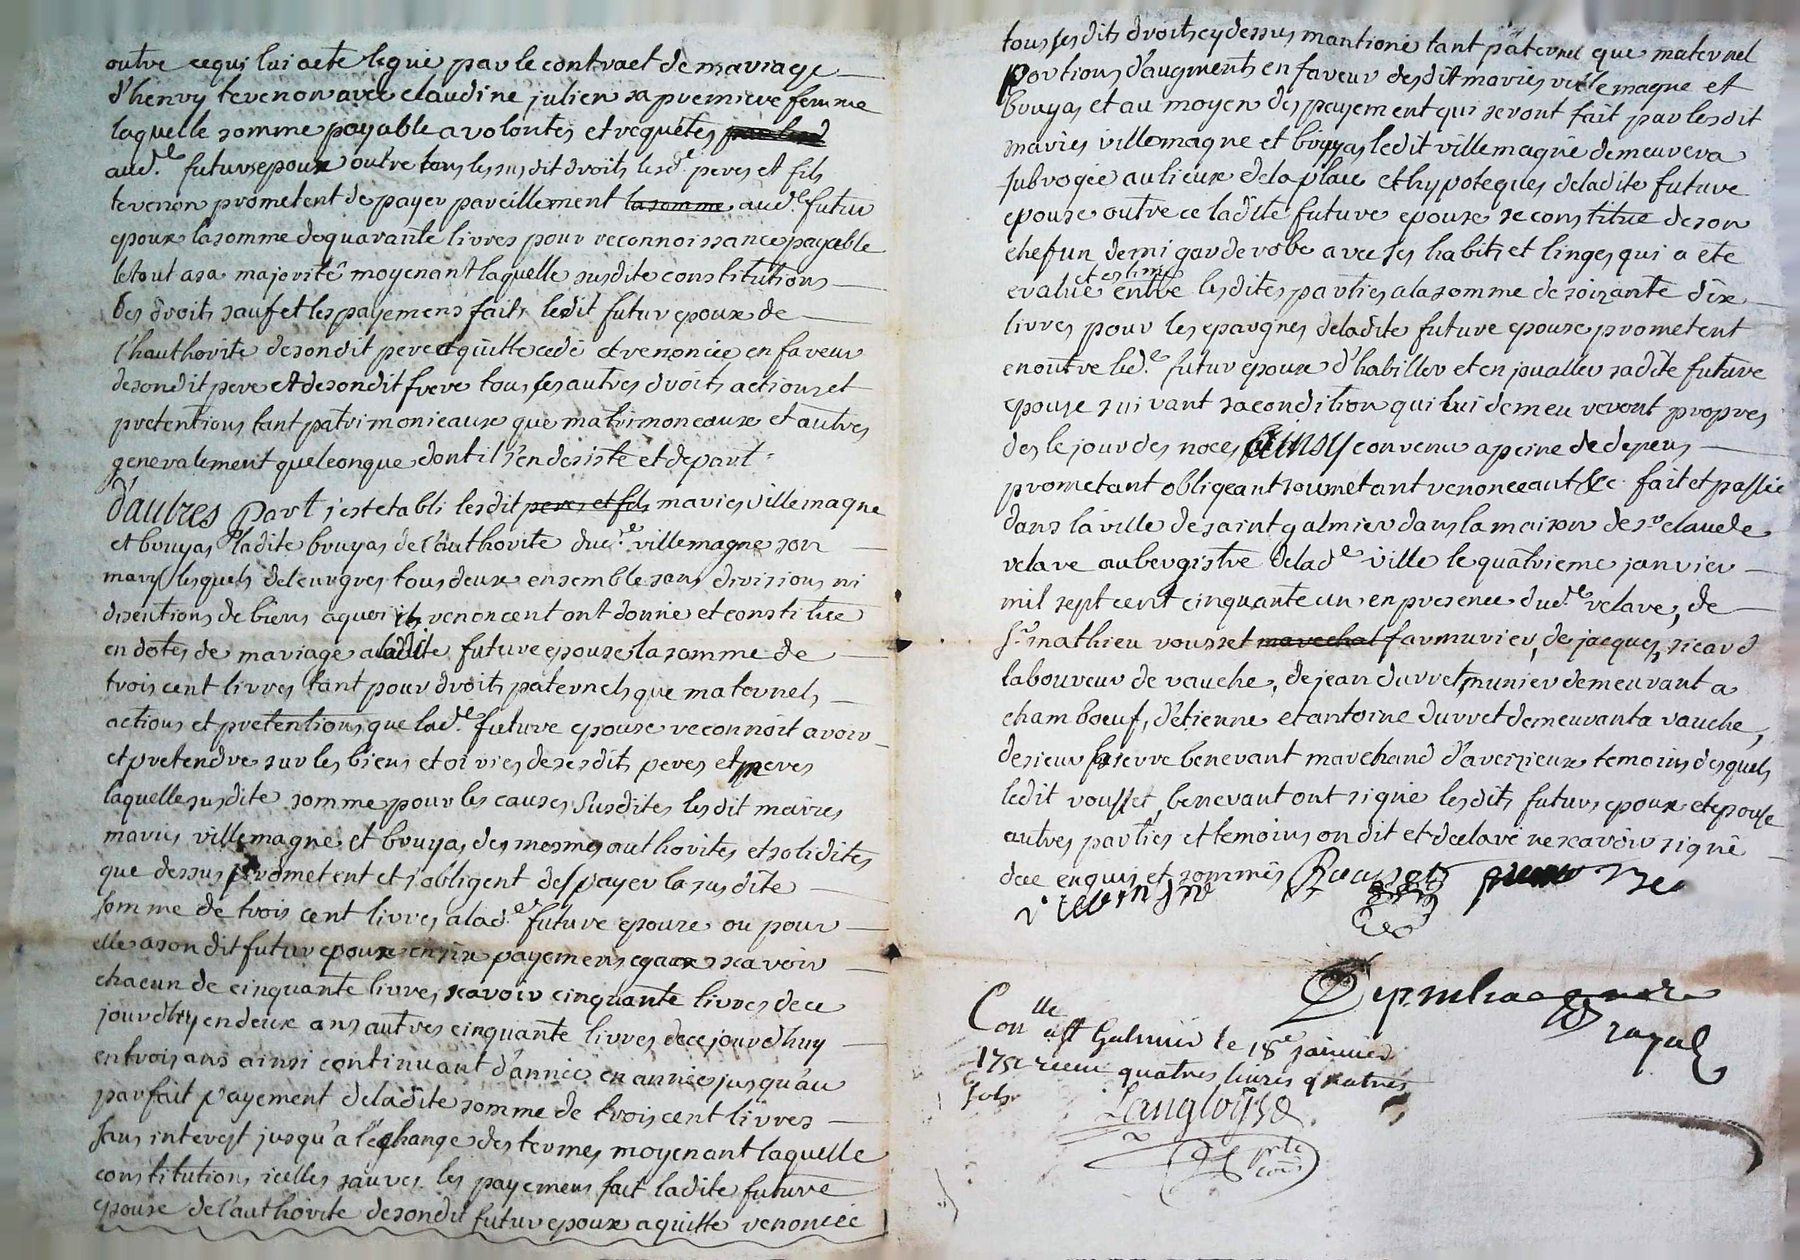 outre cequi lui aeté legué par le contract de mariage
d'henry tevenon avec claudine julien sa premiere femme
laquelle somme payable a volontés et requêtes
aud.e futur epoux outre tous les susdit droits lesd.e peres et fils
tevenon prometent de payer pareillement la somme aud.e futur
epoux la somme de quarante livres pour reconnoissance payable
le tout a sa majorité moyenant laquelle susdite constitutions
des droits sauf et les payemens faits ledit futur epoux de
l'hauthorité de sondit pere a quitté cedé et renoncée en faveur
de sondit pere et de sondit frere tous ses autres droits actions et
pretentions tant patrimonieaux que matrimoneaux et autres
generalement quelconque dont il s'en desiste et depart
d'autres Part s'est etabli lesdit peres et fils maries villemagne
et bruyas ladite bruyas de l'authorité dud.e villemagne son
mary lesquels de leur gres tous deux ensemble sans divisions ni
disentions de biens a quoi ils renoncent ont donné et constitué
en dotes de mariage a ladite future epouse la somme de
trois cent livres tant pour droits paternels que maternels
actions et pretentions que lad.e future epouse reconnoit avoir
et pretendre sur les biens et oiries de sesdits peres et meres
laquelle susdite somme pour les causes susdites lesdit
maries villemagne et bruyas des mesmes authorités et solidités
que dessus prometent et s'obligent de payer la susdite
somme de trois cent livres a lad.e future epouse ou pour
elle a son dit futur epoux en six payemens egaux scavoir
chacun de cinquante livres scavoir cinquante livres de ce
jourdhuy en deux ans autres cinquante livres de ce jourdhuy
en trois ans ainsi continuant d'année en année jusqu'au
parfait payement de ladite somme de trois cent livres
sans interest jusqu'a l'echange des termes moyenant laquelle
constitution icelles sauves les payemens fait ladite future
epouse de l'authorité de sondit futur epoux a quitté renoncée
tous sesdits droits cy dessus mantioné tant paternel que maternel
portions d'augments en faveur desdit maries villemagne et
bruyas et au moyen des payement qui seront fait par lesdit
maries villemagne et bruyas ledit villemagne demeurera
subrogée au lieux de la place et hypoteques de ladite future
epouse outre ce ladite future epouse se constitue de son
chef un demi garderobe avec ses habits et linges qui a été
evalué et estimé entre lesdites parties a la somme de soixante dix
livres pour les epargnes de ladite future epouse prometent
en outre led.e futur epoux d'habiller et enjoualler sadite future
epouse suivant sa condition qui lui demeureront propres
des le jour des noces ainsy convenu a peine de depens
prometant obligeant soumetant renonceant &c fait et passée
dans la ville de saint galmier dans la maison de s.r claude
velare aubergistre de lad.e ville le quatrieme janvier
mil sept cent cinquante un en presence dud.e velare, de
s.r mathieu rousset marechal farmurier, de jacques sicard
laboureur de vauche, de jean durret munier demeurant a
chamboeuf, d'étienne et antoine durret demeurant a vauche,
de sieur benevant marchand d'aveizieux temoins desquels
ledit rousset, benevant ont signé lesdits futurs epoux et epouse
autres parties et temoins on dit et declaré ne scavoir signé
de ce enquis et sommés Rousset
Con.lle a s.t Galmier le 18.e janvier
1751 receu quatres livres quatres
sols
Langloys